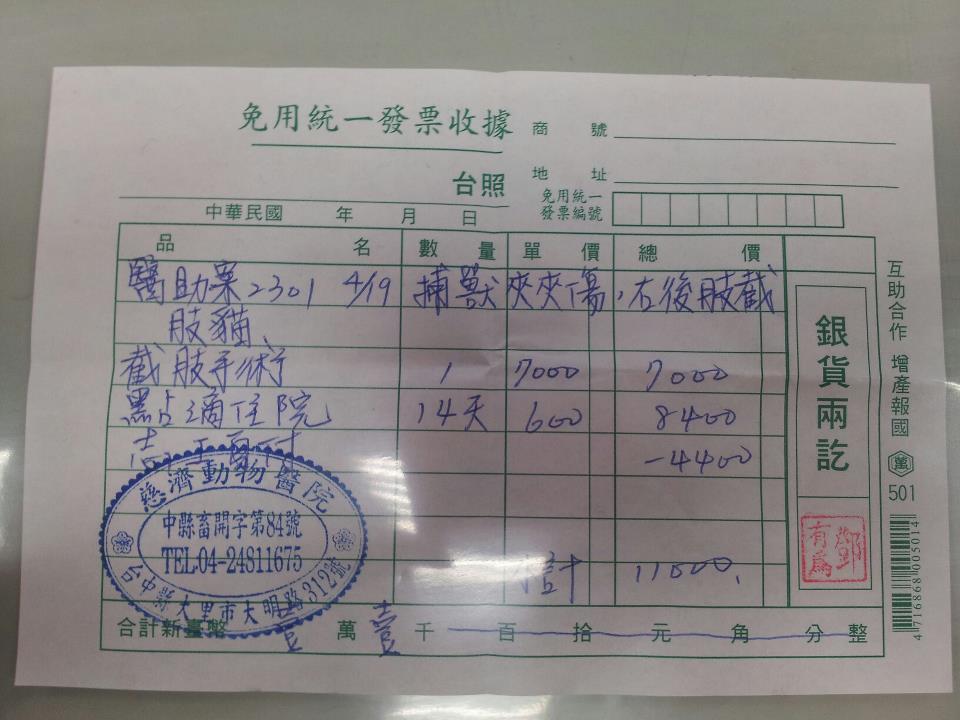 免用統一發票收據
商號
台照
地址
免用統一
發票編號
中華民國 年 月 日
品名 數量 單價 總價
醫助案2301 4/19 捕獸夾夾傷,右後肢截
肢貓、
截肢手術 1 7000 7000
點滴住院 14天 600 8400
志工自付 -4400
慈濟動物醫院
中縣畜開字第84號
TEL.04-24811675
台中縣大里市大明路312號
總計 11000.
合計新臺幣 壹萬 壹千 百 拾 元 角 分 整
銀貨兩訖
鄧有為
互助合作 增產報國 萬 501
4 716868 005014